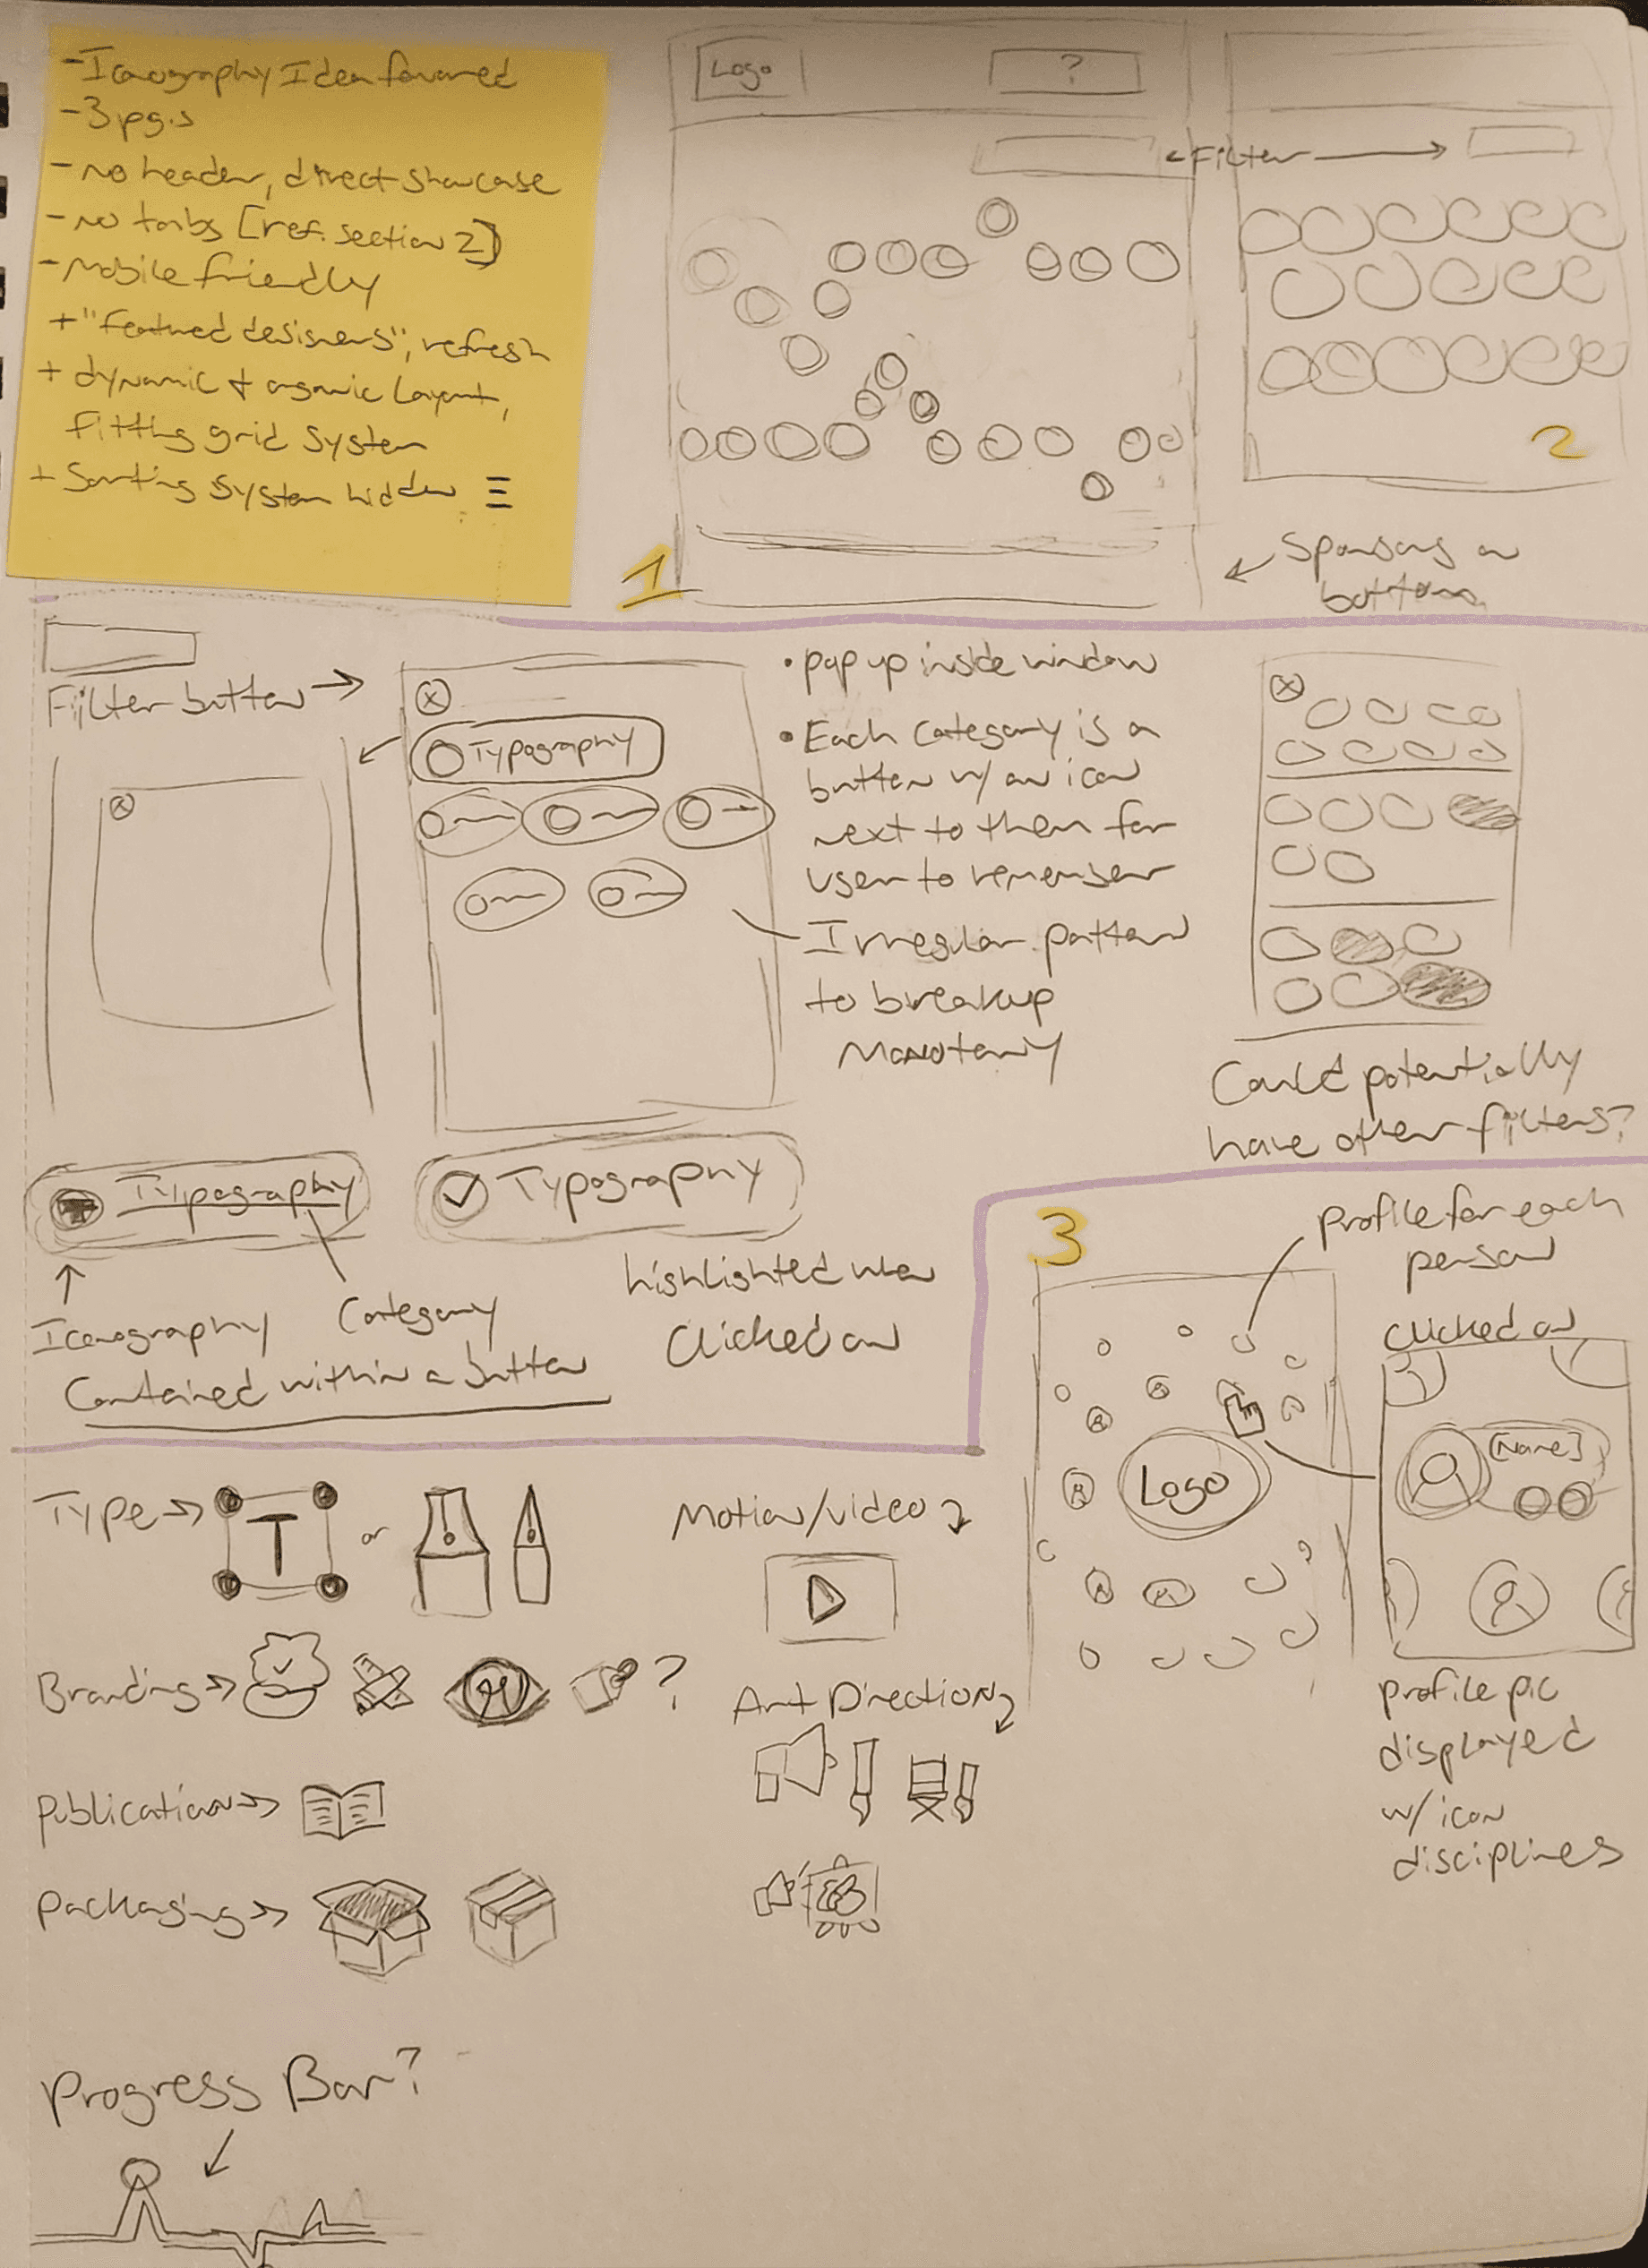 - Iconography Idea favored
- 3 pg.s
- no header, direct showcase
- no tabs [ref. section 2]
- Mobile friendly
+ "featured designers", refresh
+ dynamic & organic layout,
fitting grid system
+ Sorting System hidden ☰
Logo
?
Filter
1
2
Sponsors on
bottom
Filter button
Typography
• pop up inside window
• Each category is a
button w/ an icon
next to them for
user to remember
Irregular pattern
to breakup
Monotony
Could potentially
have other filters?
Typography
Typography
Iconography
Category
Contained within a button
highlighted when
Clicked on
3
Profile for each
person
Clicked on
Logo
[Name]
profile pic
displayed
w/ icon
disciplines
Type
T
or
Motion/video
Branding
?
Art Direction
Publication
Packaging
Progress Bar?